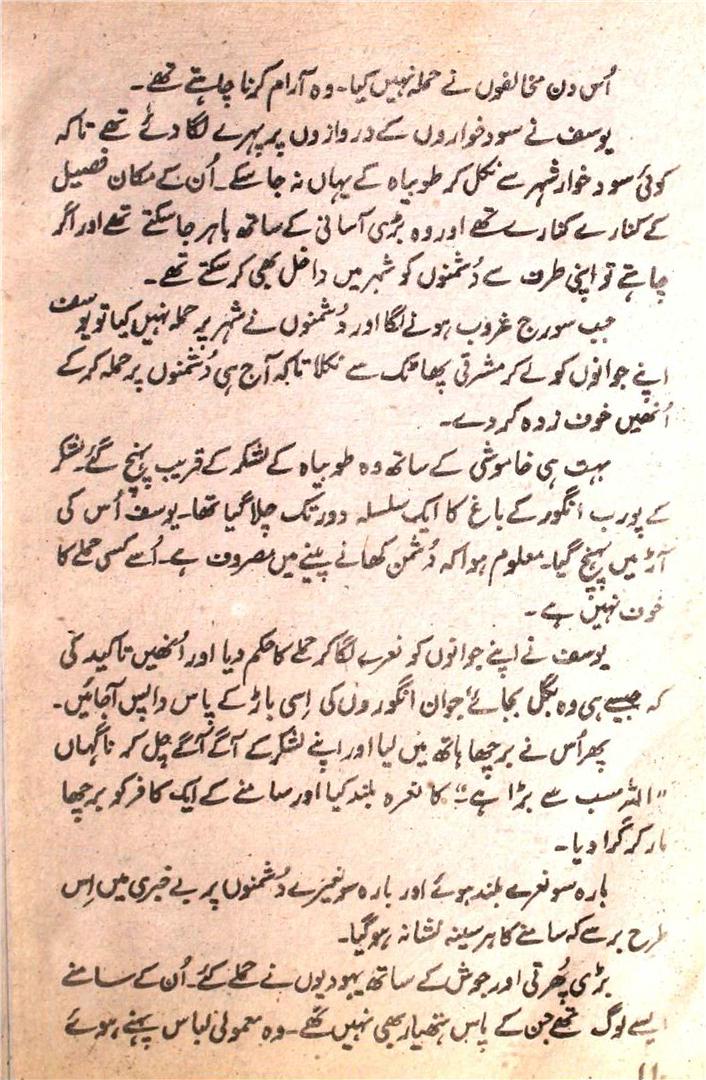 اُس دن مخالفوں نے حملہ نہیں کیا۔ وہ آرام کرنا چاہتے تھے۔
یوسف نے سود خواروں کے دروازوں پر پہرے لگا دئے تھے تاکہ
کوئی سود خوار شہر سے نکل کر طوبیاہ کے یہاں نہ جا سکے۔ اُن کے مکان فصیل
کے کنارے کنارے تھے اور وہ بڑی آسانی کے ساتھ باہر جا سکتے تھے اور اگر
چاہتے تو اپنی طرف سے دُشمنوں کو شہر میں داخل بھی کر سکتے تھے۔
جب سورج غروب ہونے لگا اور دُشمنوں نے شہر پر حملہ نہیں کیا تو یوسف
اپنے جوانوں کو لے کر مشرقی پھاٹک سے نکلا تاکہ آج ہی دُشمنوں پر حملہ کر کے
اُنھیں خوف زدہ کر دے۔
بہت ہی خاموشی کے ساتھ وہ طوبیاہ کے لشکر کے قریب پہنچ گئے۔ لشکر
کے پورب انگور کے باغ کا ایک سلسلہ دور تک چلا گیا تھا۔ یوسف اُس کی
آڑ میں پہنچ گیا۔ معلوم ہوا کہ دُشمن کھانے پینے میں مصروف ہے۔ اُسے کسی حملے کا
خوف نہیں ہے۔
یوسف نے اپنے جوانوں کو نعرے لگا کر حملے کا حکم دیا اور اُنھیں تاکید کی
کہ جیسے ہی وہ بگل بجائے جوان انگوروں کی اِسی باڑ کے پاس واپس آجائیں۔
پھر اُس نے برچھا ہاتھ میں لیا اور اپنے لشکر کے آگے آگے چل کر ناگہاں
"اللہ سب سے بڑا ہے" کا نعرہ بلند کیا اور سامنے کے ایک کافر کو برچھا
مار کر گرا دیا۔
بارہ سو نعرے بلند ہوئے اور بارہ سو نیزے دُشمنوں پر بے خبری میں اِس
طرح برسے کہ سامنے کا ہر سینہ نشانہ ہو گیا۔
بڑی پُھرتی اور جوش کے ساتھ یہودیوں نے حملے کئے۔ اُن کے سامنے
ایسے لوگ تھے جن کے پاس ہتھیار بھی نہیں تھے۔ وہ معمولی لباس پہنے ہوئے